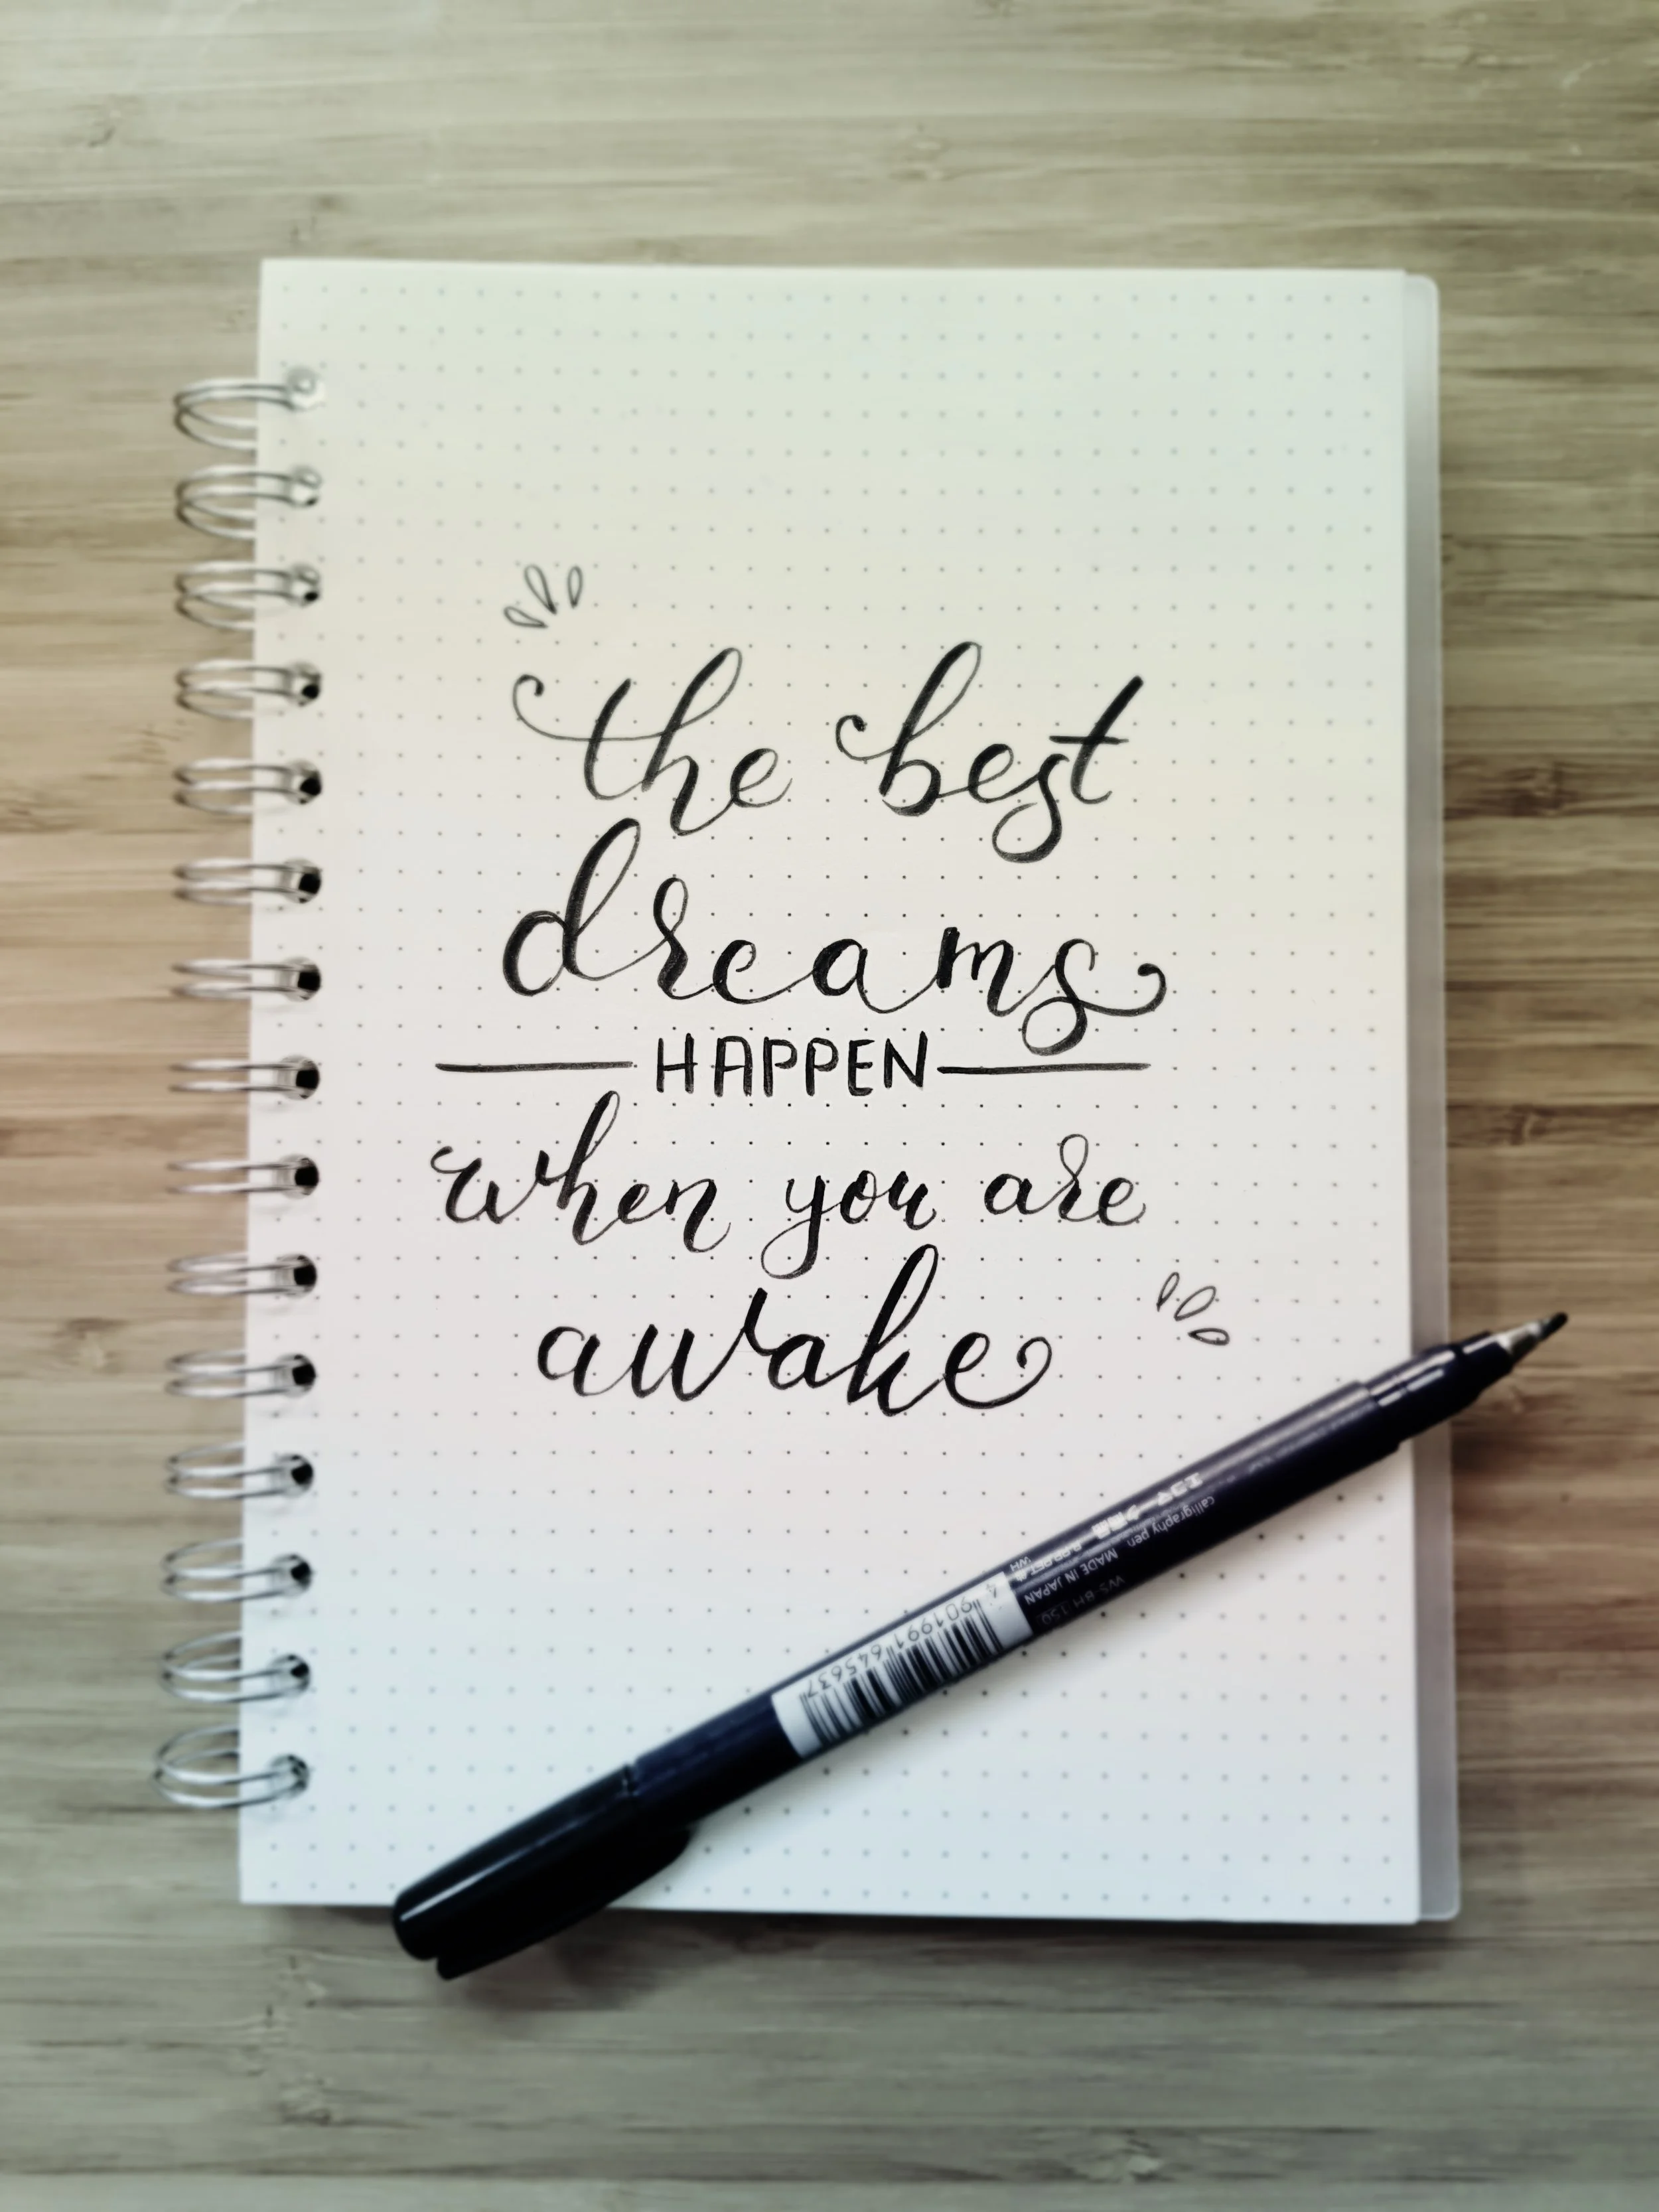 the best
dreams
HAPPEN
when you are
awake
calligraphy pen
MADE IN JAPAN
4 901991 645637